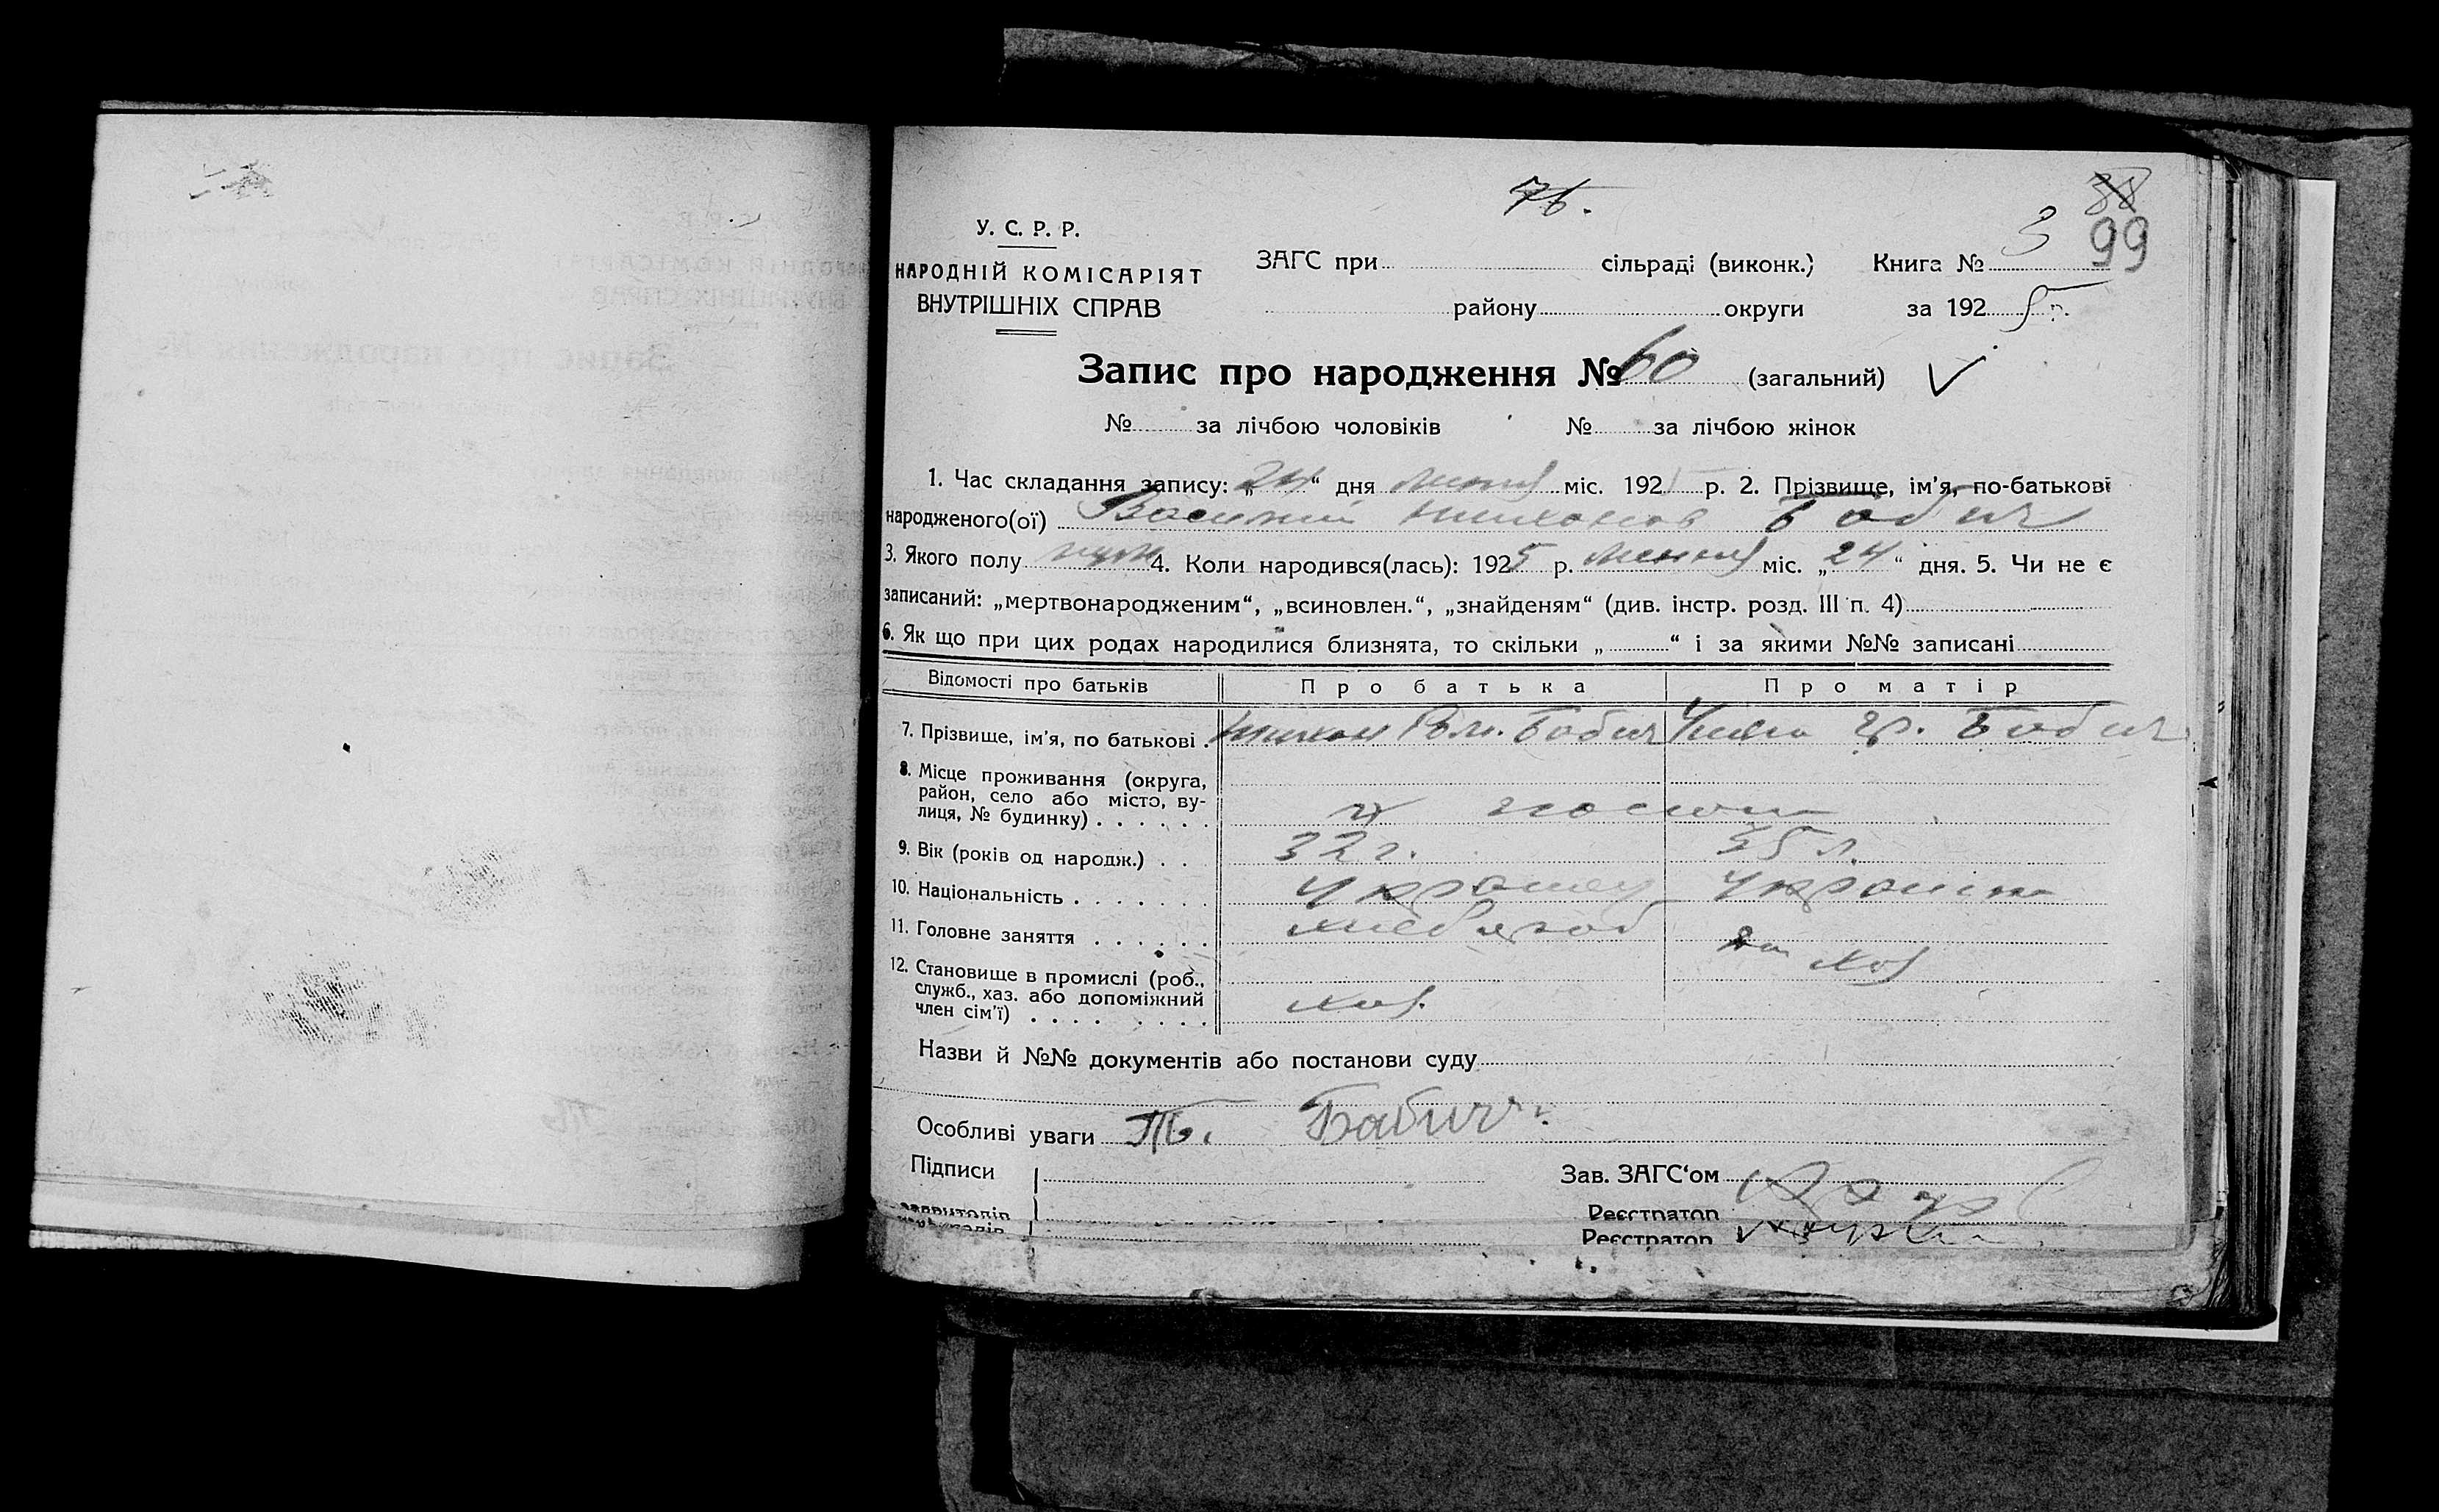 76.
88
99
У. С. Р. Р.
НАРОДНІЙ КОМІСАРІЯТ
ВНУТРІШНІХ СПРАВ
ЗАГС при сільраді (виконк.) Книга № 3
району округи за 192 5 р.
Запис про народження № 60 (загальний)
№ за лічбою чоловіків № за лічбою жінок
1. Час складання запису: „24“ дня міс. 192 р. 2. Прізвище, ім’я, по-батькові
народженого(ої) Василий Тихонов Бабич
3. Якого полу муж 4. Коли народився(лась): 1925 р. міс. „24“ дня. 5. Чи не є
записаний: „мертвонародженим“, „всиновлен.“, „знайденям“ (див. інстр. розд. III п. 4)
6. Як що при цих родах народилися близнята, то скільки „ “ і за якими №№ записані
Відомості про батьків Про батька Про матір
7. Прізвище, ім’я, по батькові . Тихон Бабич Бабич
8. Місце проживання (округа,
район, село або місто, ву-
лиця, № будинку) . . . . . .
9. Вік (років од народж.) . . 32 г. 35 л.
10. Національність . . . . . . .
11. Головне заняття . . . . . .
12. Становище в промислі (роб.,
служб., хаз. або допоміжний
член сім’ї) . . . . . . . . хоз.
Назви й №№ документів або постанови суду
Особливі уваги Бабич
Підписи Зав. ЗАГС‘ом
Реєстратор
Реєстратор